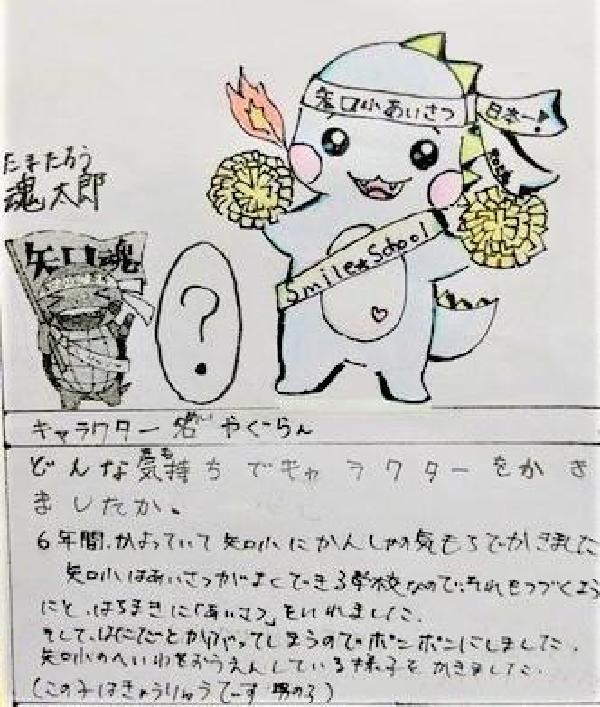 矢口小あいさつ
日本一!
たまたろう
魂太郎
矢口魂
Smile★School
?
キャラクター名 やぐらん
どんな気持ちでキャラクターをかき
ましたか。
6年間、かよっていて矢口小にかんしゃの気もちでかきました
矢口小はあいさつがよくできる学校なので、それをつづくよう
にと、はちまきに「あいさつ」をいれました。
そして、はだだとかぶってしまうのでポンポンにしました。
矢口小のへいわをおうえんしている様子をかきました。
(この子はきょうりゅうでーす 男の子)